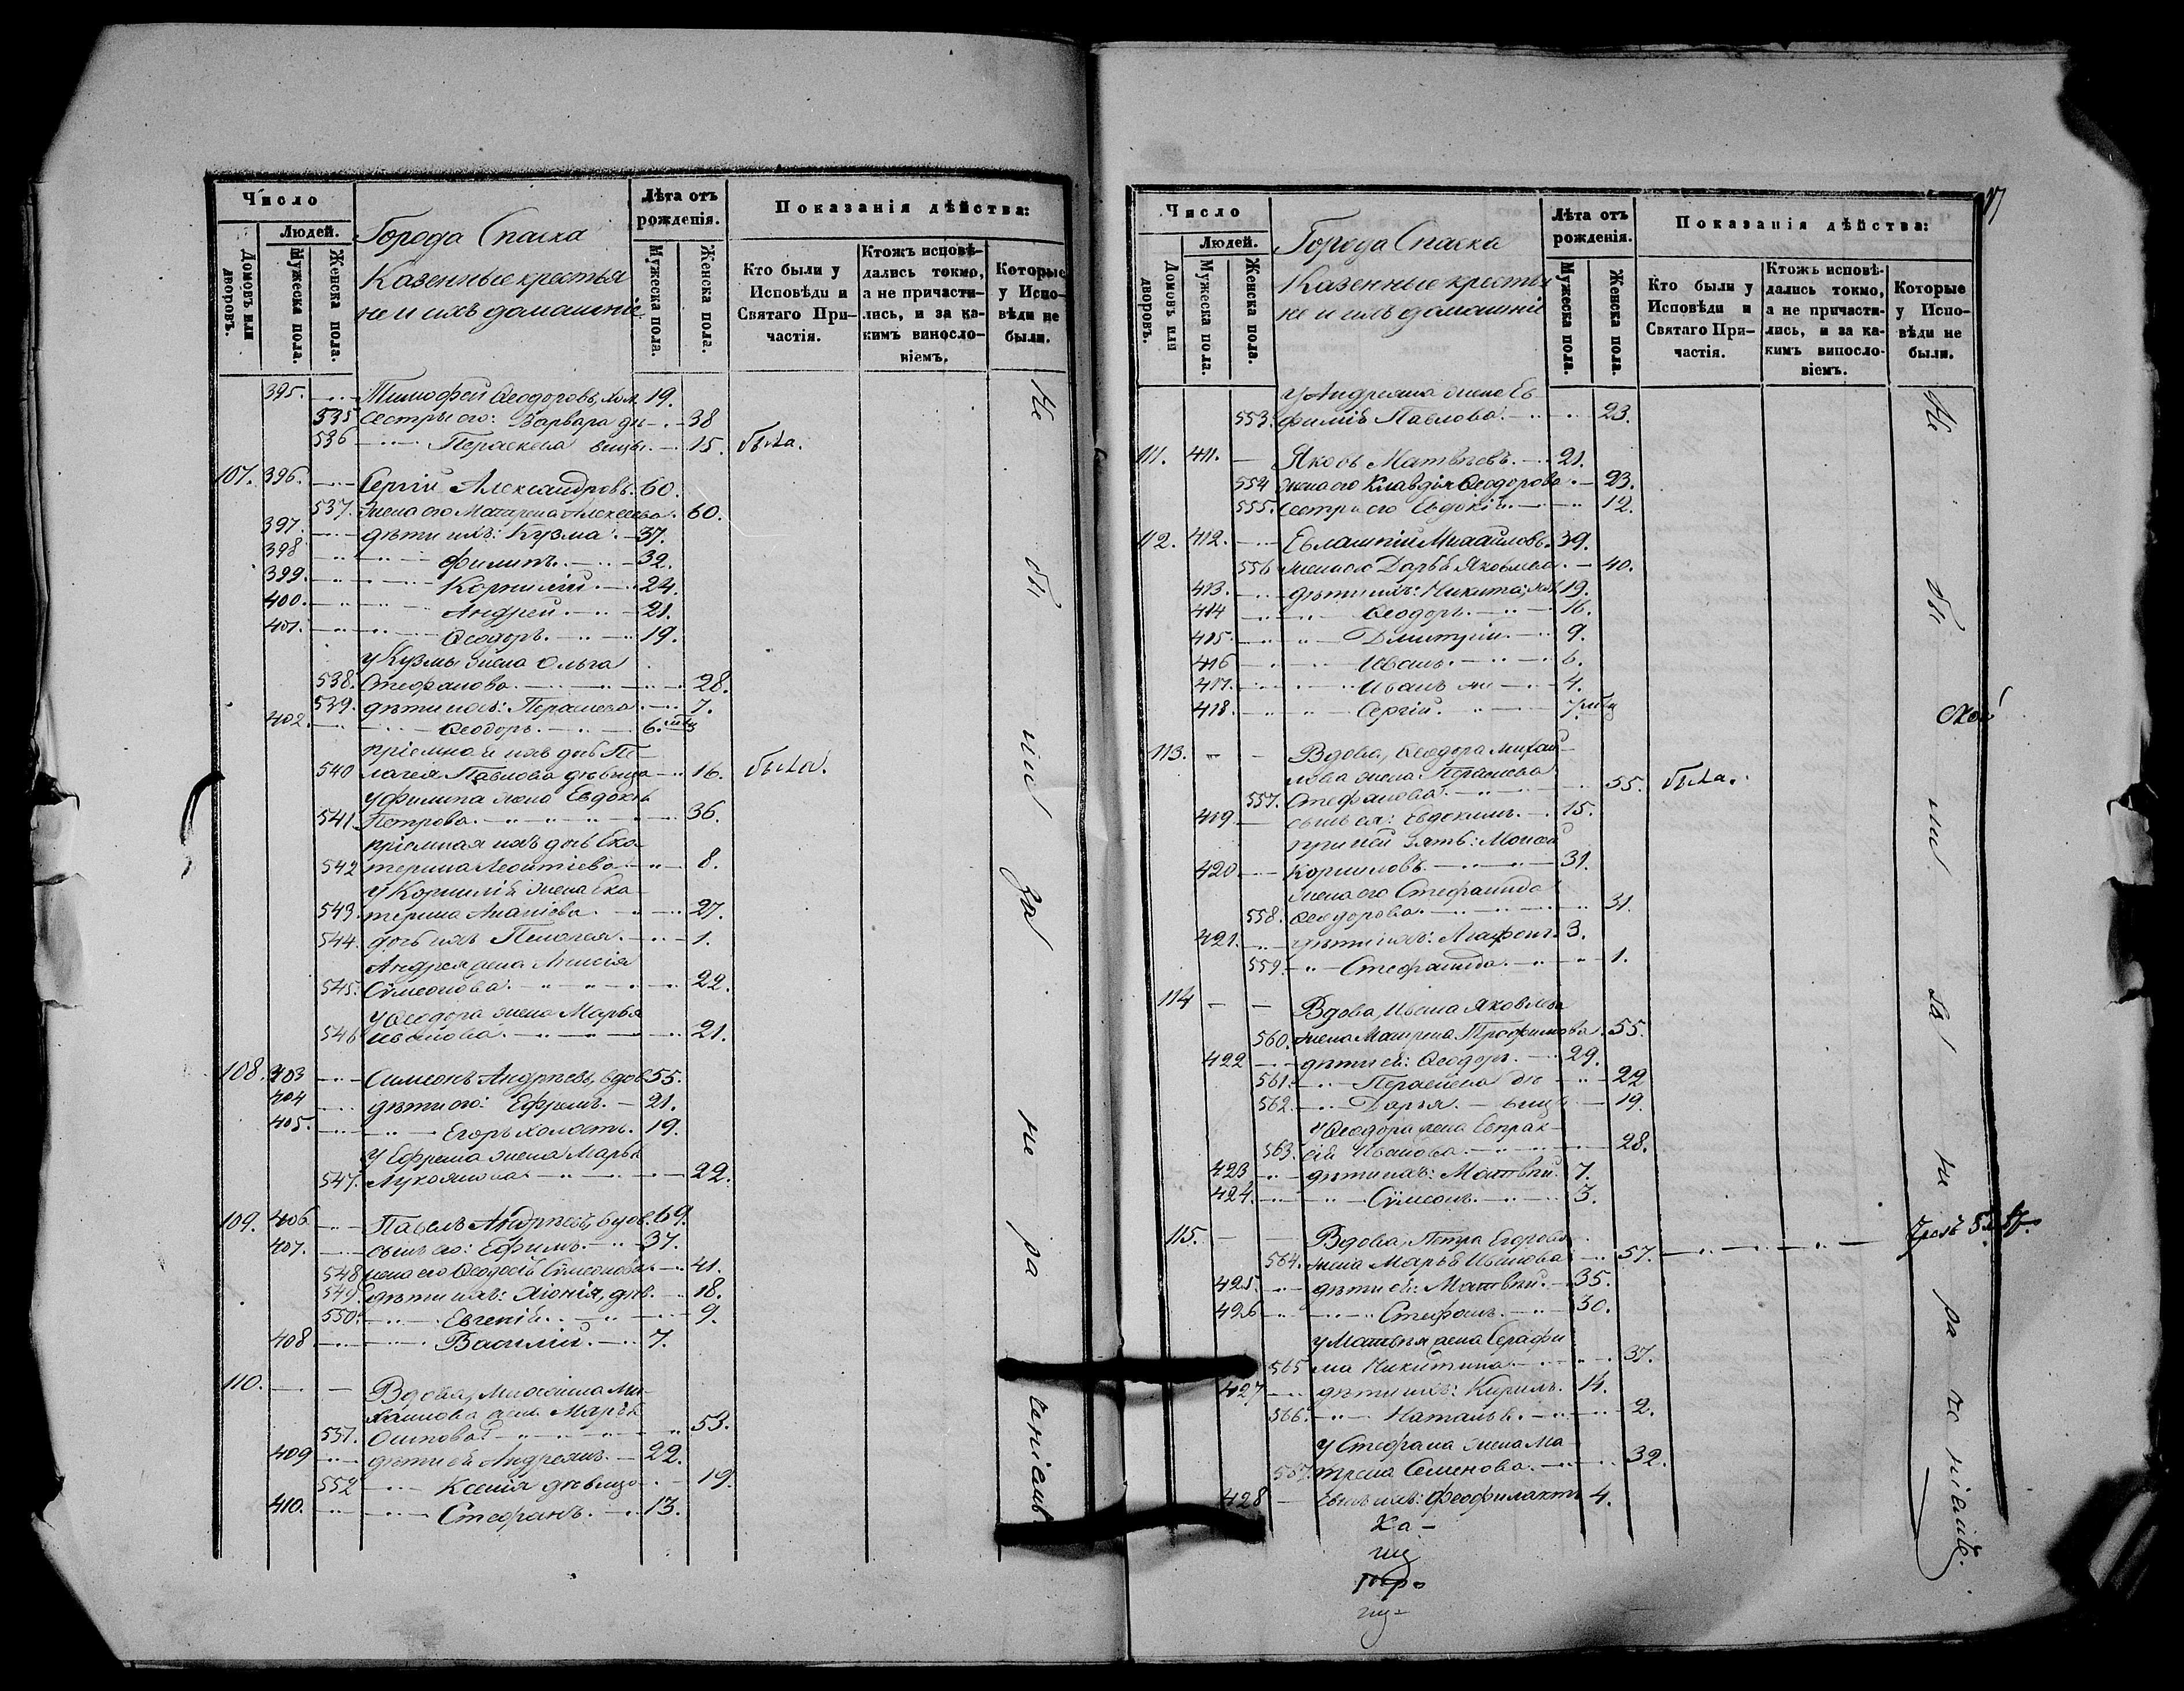 Число
Людей.
Домовъ или дворовъ.
Мужеска пола.
Женска пола.
Города Спаска
Казенные крестья
не и ихъ домашніе
Лѣта отъ рожденія.
Мужеска пола.
Женска пола.
Показанія дѣйства:
Кто были у Исповѣди и Святаго При-частія.
Ктожъ исповѣ-дались токмо, а не причасти-лись, и за ка-кимъ виносло-віемъ.
Которые у Испо-вѣди не были.
395. Тимофей Ѳеодоровъ, хол. 19.
535 Сестры его: Варвара дѣ- 38
536 Параскева вицы. 15. была.
107. 396. Сергій Александровъ. 60.
537. Жена его Матрена Алексеева. 60.
397. дѣти ихъ: Кузма 37.
398 Филипъ. 32.
399. Корнилій. 24.
400. Андрей. 21.
401. Ѳеодоръ. 19.
У Кузмы жена Ольга
538. Стефанова. 28.
539. дѣти ихъ: Параскева 7.
402. Ѳеодоръ. 6.
пріемная ихъ дочь Пе-
540 лагея Павлова дѣвица 16. была.
У Филипа жена Евдокія
541. Петрова. 36.
пріемная ихъ дочь Ека-
542 терина Леонтіева 8.
У Корнилія жена Ека-
543. терина Ананіева. 27.
544. дочь ихъ Пелагея. 1.
Андрея жена Анисія
545. Сѵмеонова. 22.
У Ѳеодора жена Марья
546 Иванова. 21.
108. 403 Симеонъ Андреевъ, вдов. 55.
404 дѣти его: Ефремъ. 21.
405. Егоръ холостъ. 19.
У Ефрема жена Марья
547. Лукоянова 22.
109. 406 Павелъ Андреевъ, вдов. 69.
407. сынъ его: Ефимъ. 37.
548 жена его Ѳеодосія Сѵмеонова 41.
549. дѣти ихъ: Хіонія, дѣв. 18.
550. Евгенія. 9.
408 Василій. 7.
110. Вдова,
хаилова жена Марья
551. Осипова. 53.
409 дѣти ей Андреянъ. 22.
552 Ксенія дѣвица 19.
410. Стефанъ. 13.
Не бы ли за не ра че ніемъ
17
Число
Людей.
Домовъ или дворовъ.
Мужеска пола.
Женска пола.
Города Спаска
Казенные крестья
не и ихъ домашніе
Лѣта отъ рожденія.
Мужеска пола.
Женска пола.
Показанія дѣйства:
Кто были у Исповѣди и Святаго При-частія.
Ктожъ исповѣ-дались токмо, а не причасти-лись, и за ка-кимъ виносло-віемъ.
Которые у Испо-вѣди не были.
У Андреяна жена Ев-
553. фимія Павлова. 23.
111. 411. Яковъ Матвѣевъ. 21.
554 жена его Клавдія Ѳеодорова. 23.
555. сестра его Евдокія. 12.
112. 412. Евлампій Михайловъ. 39.
556 жена его Дарья Яковлева. 40.
413. дѣти ихъ: Никита, хол. 19.
414 Ѳеодоръ. 16.
415. Дмитрій. 9.
416 Иванъ. 6.
417. Иванъ 4.
418. Сергій. 7
113. Вдова, Ѳеодора Михай-
лова жена Параскева
557. Стефанова. 55. была.
419 сынъ ея: Евдокимъ. 15.
при ней зять: Моисей
420 Корниловъ 31.
жена его Стефанида
558. Ѳеодорова. 31.
421. дѣти ихъ: Агафонъ. 3.
559. Стефанида. 1.
114 Вдова, Ивана Яковлева
560. жена Матрена Трофимова. 55.
422 дѣти ей: Ѳеодоръ. 29.
561. Параскева дѣ 22
562. Дарья. вицы 19.
У Ѳеодора жена Епрак-
563. сія Иванова. 28.
423 дѣти ихъ: Матвѣй. 7.
424. Сѵмеонъ. 3.
115. Вдова, Петра Егорова
564. жена Марья Иванова 57.
425. дѣти ей: Матвѣй. 35.
426 Стефанъ. 30.
У Матвѣя жена Серафи
565 ма Никитина. 37.
427 дѣти ихъ: Кирилъ. 14.
566. Наталья. 2.
У Стефана жена Ма-
567. трена Семенова. 32.
428 сынъ ихъ: Феофилактъ 4.
Ка-
Не бы ли за не ра че ніемъ.